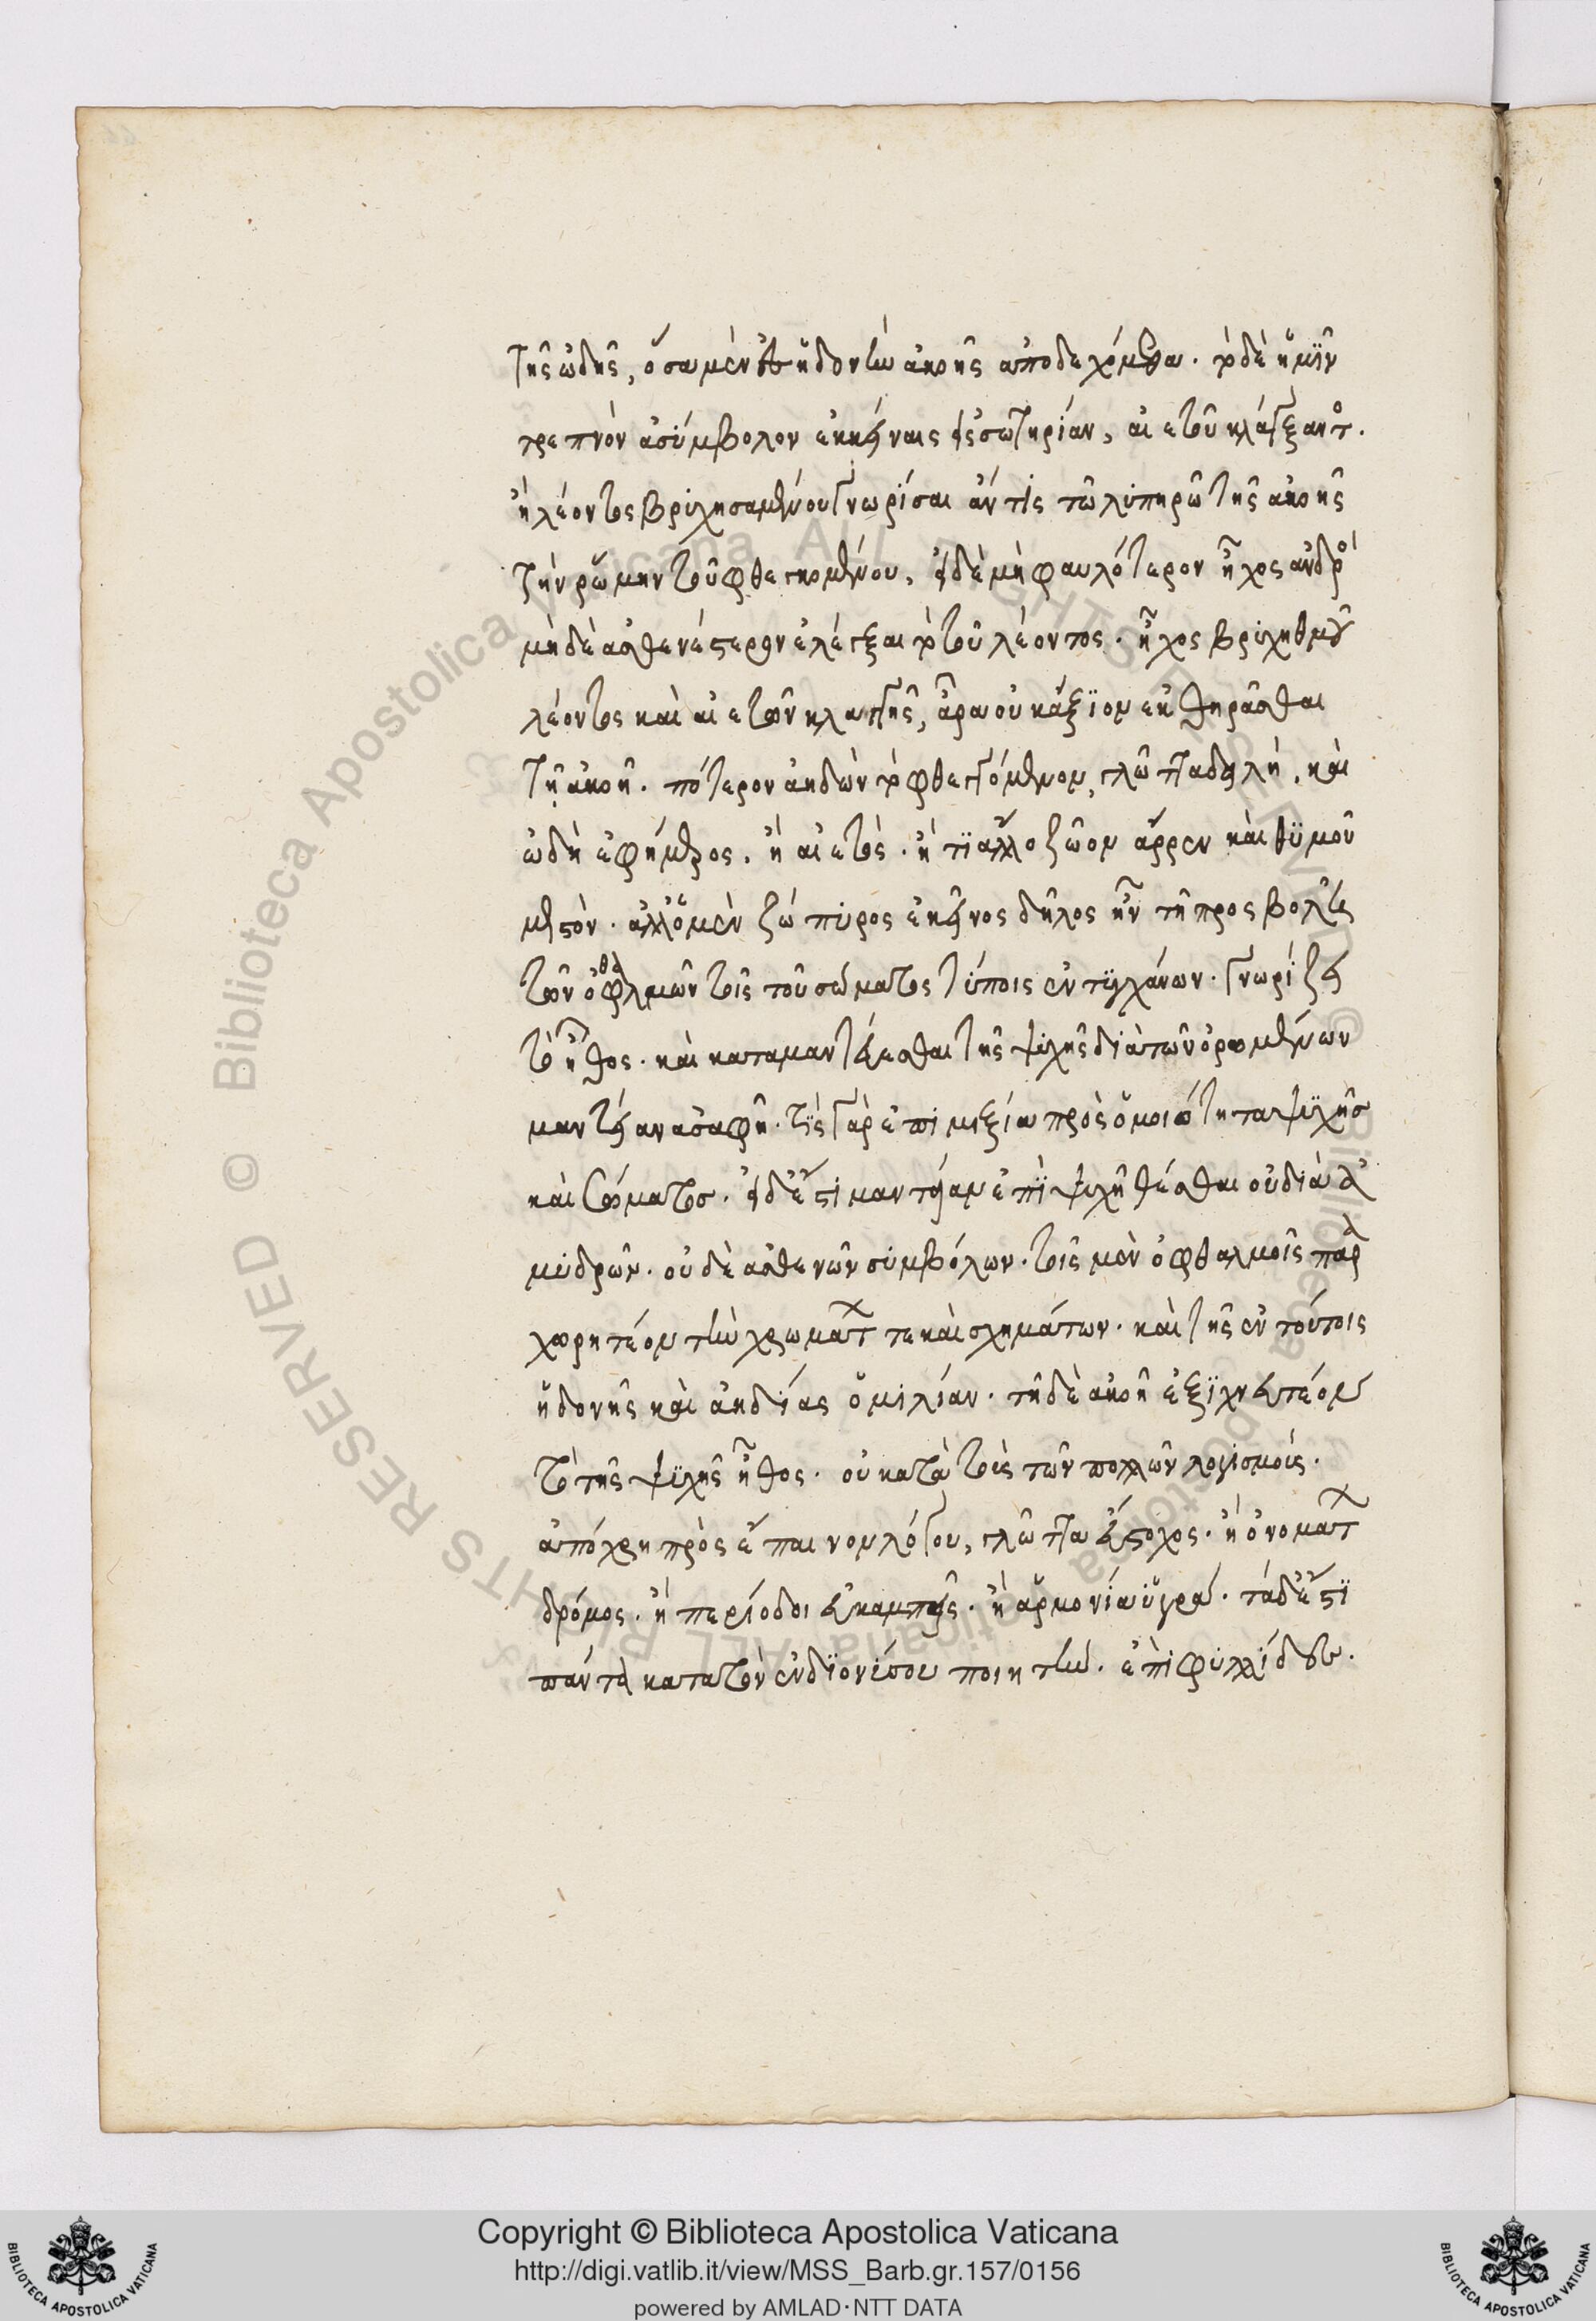 τῆς ὠδῆς, ὅσα μὲν καθ' ἡδονὴν ἀκοῆς ἀποδεχόμεθα. τὸ δὲ ἡμῖν
τρεπνὸν ἀσύμβολον ἐκείναις εἰς σωτηρίαν, αἰετοῦ κλάγξαντος.
ἢ λέοντος βρυχησαμένου γνωρίσαι ἄν τις τῶ λυπηρῶ τῆς ἀκοῆς
τὴν ῥώμην τοῦ φθεγκομένου, εἰ δὲ μὴ φαυλότερον ἦχος ἀνδρὸς
μὴ δὲ ἀσθενέστερον ἐλέγξαι τὸ τοῦ λέοντος. ἦχος βρυχηθμοῦ
λέοντος καὶ αἰετῶν κλαγγῆς, ἆρα οὐκ ἄξιον ἐκθηρᾶσθαι
τῆ ἀκοῆ. πότερον ἀηδὼν τὸ φθεγγόμενον, γλῶττα δειλὴ, καὶ
ὠδὴ ἐφήμερος, ἢ αἰετὸς. ἤ τι ἄλλο ζῶον ἄρρεν καὶ θυμοῦ
μεστὸν. ἀλλ' ὁ μὲν ζώπυρος ἐκεῖνος δῆλος ἦν τῆ προσβολῆ
τῶν ὀφθαλμῶν τοῖς τοῦ σώματος τύποις ἐντυγχάνων. γνωρίζει
τὸ ἦθος. καὶ καταμαντεύεσθαι τῆς ψυχῆς διὰ τῶν ὁρωμένων
μαντείαν ἀσαφῆ. τίς γὰρ ἐπιμιξία πρὸς ὁμοιότητα ψυχῆς
καὶ σώματος. εἰ δὲ ἔστι μαντείαν ἐπὶ ψυχῆ θέσθαι οὐ διὰ ἀ
μυδρῶν. οὐδὲ ἀσθενῶν συμβόλων. τοῖς μὲν ὀφθαλμοῖς παρα
χωρητέον τὴν χρωμάτων τε καὶ σχημάτων. καὶ τῆς ἐν τούτοις
ἡδονῆς καὶ ἀηδίας ὁμιλίαν. τῆ δὲ ἀκοῆ ἐξιχνευτέον
τὸ τῆς ψυχῆς ἦθος. οὐ κατὰ τοὺς τῶν πολλῶν λογισμούς.
ἀπόχρη πρὸς ἔπαινον λόγου, γλῶττα εὔστοχος. ἢ ὀνομάτων
δρόμος. ἢ περίοδοι εὐκαμπεῖς. ἢ ἁρμονία ὑγρά. τὰ δὲ ἔστι
πάντα κατὰ τὸν ἐν διονύσου ποιητὴν. ἐπιφυλλίδες.
Copyright © Biblioteca Apostolica Vaticana
http://digi.vatlib.it/view/MSS_Barb.gr.157/0156
powered by AMLAD·NTT DATA